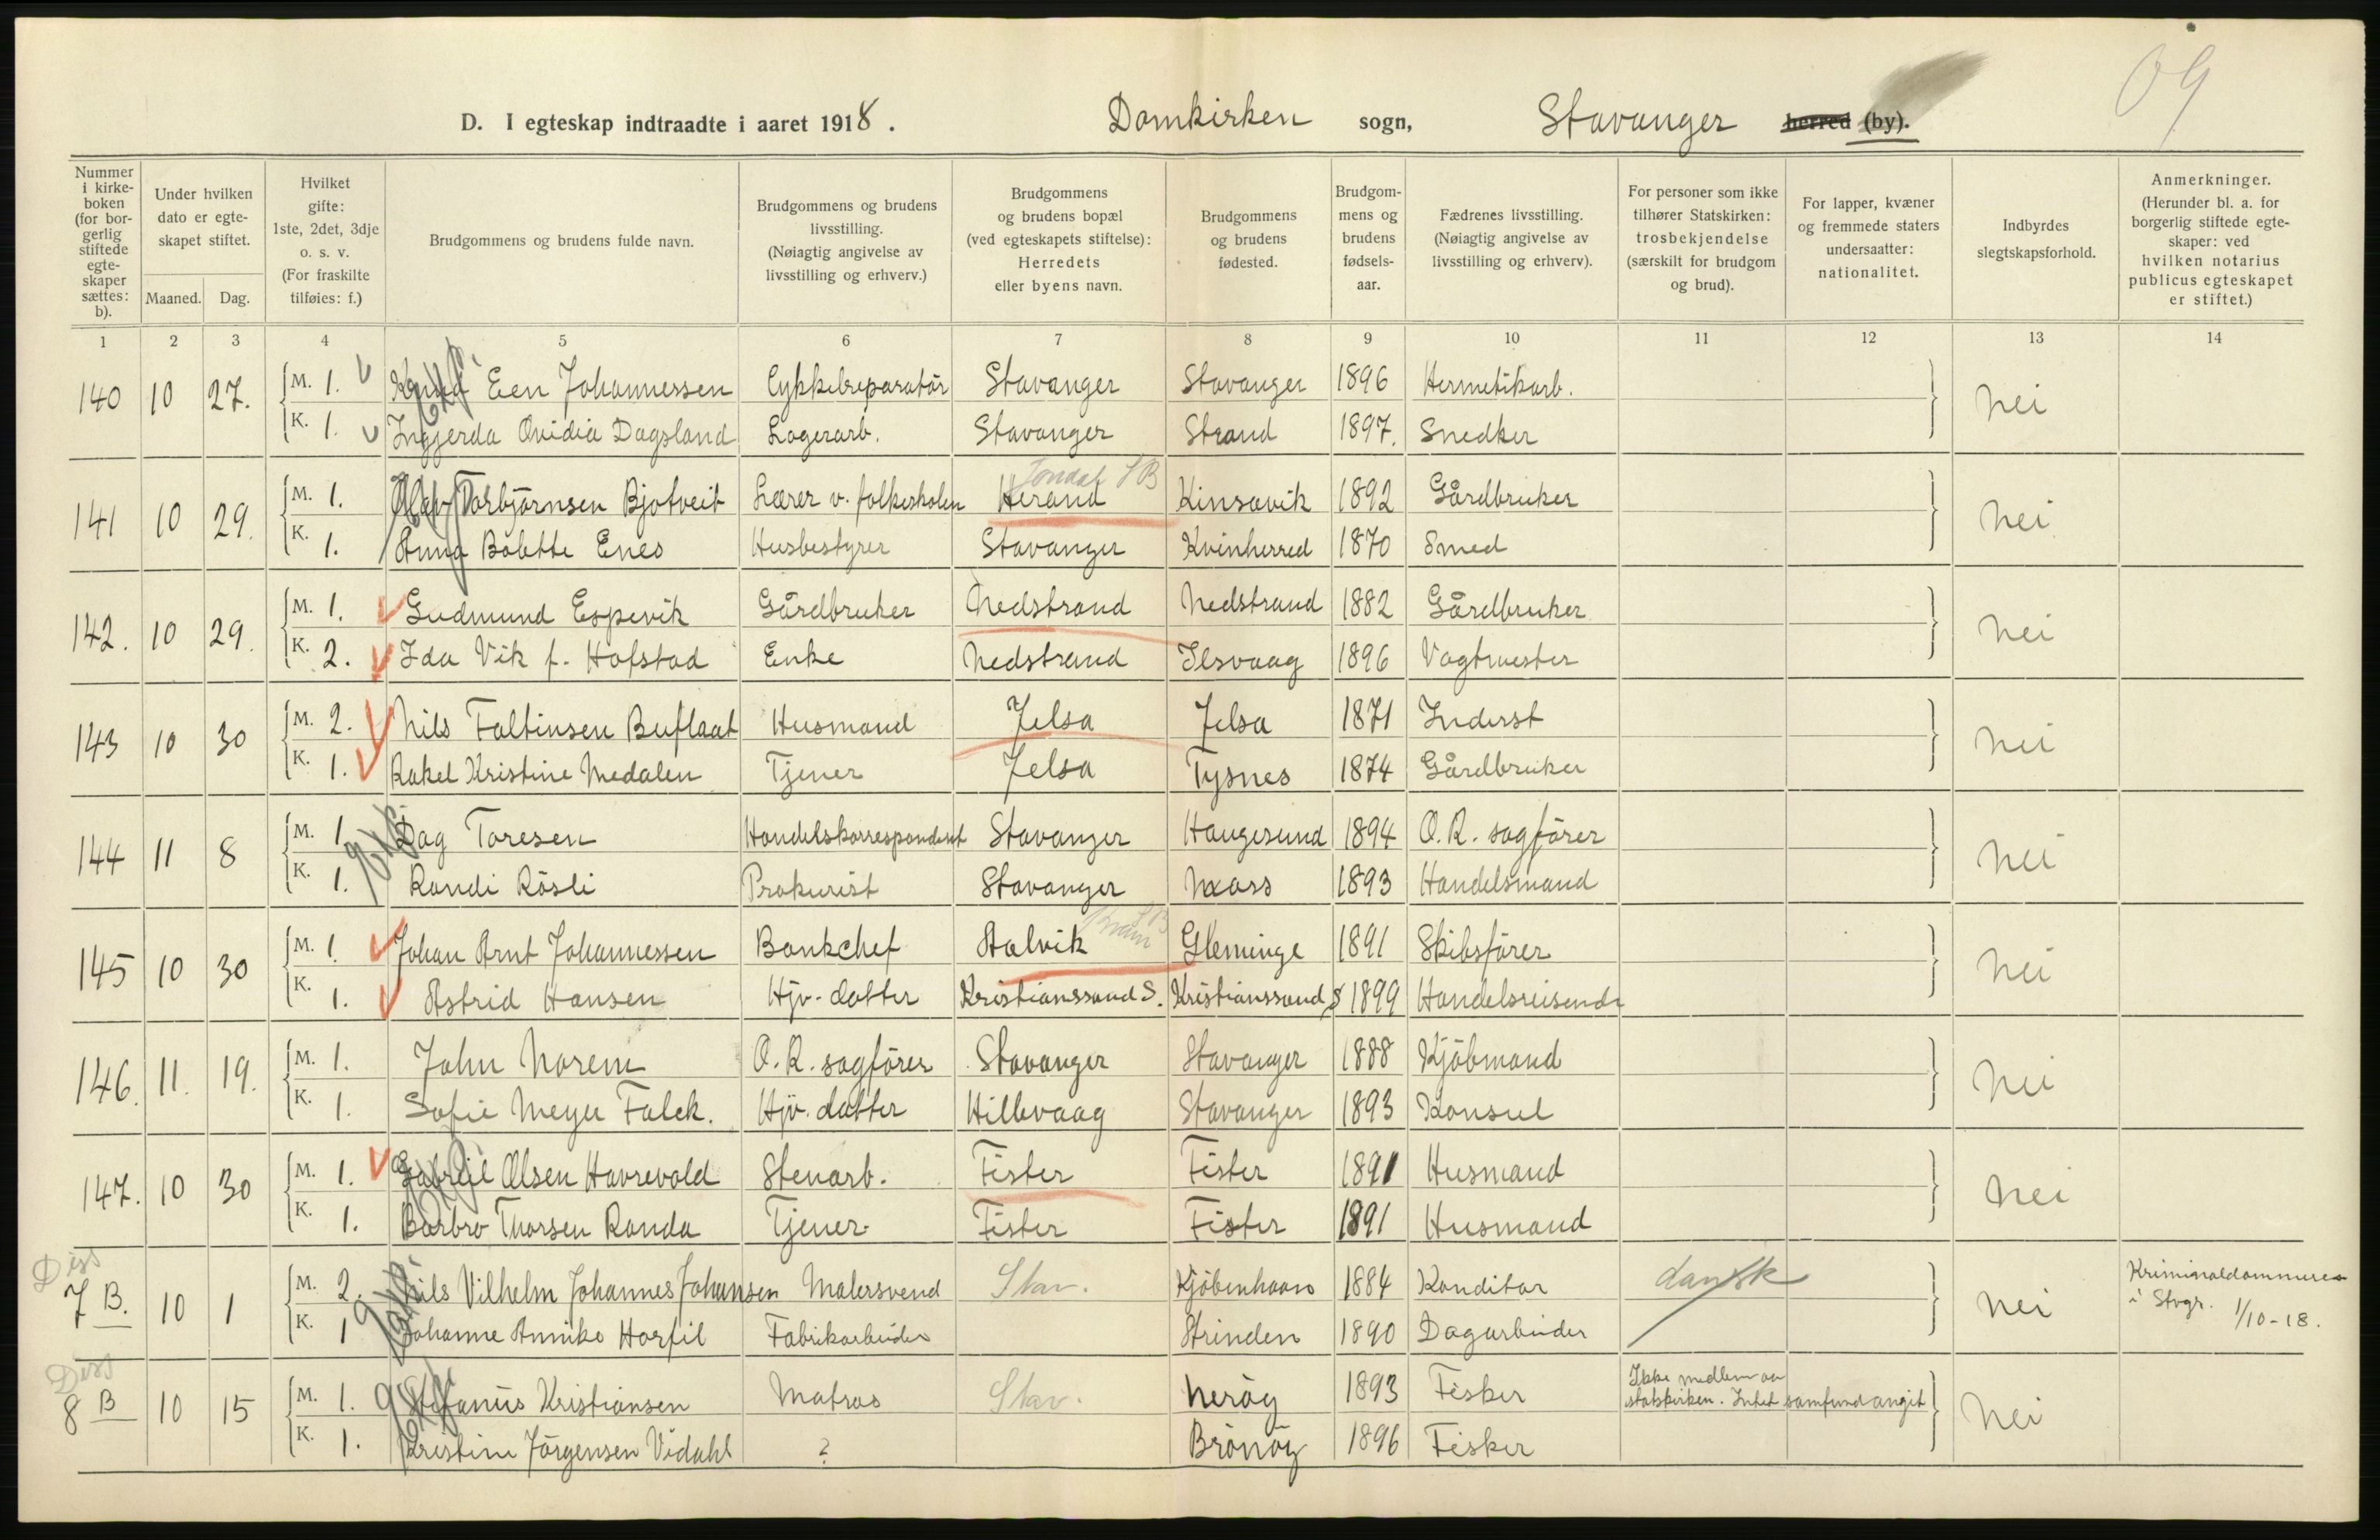 09
D. I egteskap indtraadte i aaret 1918. Domkirken sogn, Stavanger herred (by).
Nummer i kirkeboken (for borgerlig stiftede egteskaper sættes: b).
Under hvilken dato er egteskapet stiftet.
Maaned. Dag.
Hvilket gifte: 1ste, 2det, 3dje o. s. v. (For fraskilte tilføies: f.)
Brudgommens og brudens fulde navn.
Brudgommens og brudens livsstilling. (Nøiagtig angivelse av livsstilling og erhverv.)
Brudgommens og brudens bopæl (ved egteskapets stiftelse): Herredets eller byens navn.
Brudgommens og brudens fødested.
Brudgommens og brudens fødselsaar.
Fædrenes livsstilling. (Nøiagtig angivelse av livsstilling og erhverv).
For personer som ikke tilhører Statskirken: trosbekjendelse (særskilt for brudgom og brud).
For lapper, kvæner og fremmede staters undersaatter: nationalitet.
Indbyrdes slegtskapsforhold.
Anmerkninger. (Herunder bl. a. for borgerlig stiftede egteskaper: ved hvilken notarius publicus egteskapet er stiftet.)
1 2 3 4 5 6 7 8 9 10 11 12 13 14
140 10 27. M. 1. Een Johannessen Cykkelreparatör Stavanger Stavanger 1896 Hermetikarb. Nei
K. 1. Ingjerda Ovidia Dagsland Lagerarb. Stavanger Strand 1897. Snedker
Jondal SB
141 10 29. M. 1. Olav Torbjörnsen Bjotveit Lærer v. folkeskolen Herand Kinsavik 1892 Gårdbruker Nei
K. 1. Anna Bolette Enes Husbestyrer Stavanger Kvinherred 1870 Smed
142. 10 29. M. 1. Gudmund Espevik Gårdbruker Nedstrand Nedstrand 1882 Gårdbruker Nei
K. 2. Ida Vik f. Hofstad Enke Nedstrand Ilsvaag 1896 Vagtmester
143 10 30 M. 2. Nils Faltinsen Buflaat Husmand Jelsa Jelsa 1871 Inderst Nei
K. 1. Rakel Kristine Medalen Tjener Jelsa Tysnes 1874 Gårdbruker
144 11 8 M. 1. Dag Toresen Handelskorrespondent Stavanger Haugesund 1894 O. R. sagförer Nei
K. 1. Randi Rösli Prokurist Stavanger Moss 1893 Handelsmand
145 10 30 M. 1. Johan Arnt Johannessen Bankchef Aalvik Glemminge 1891 Skibsförer Nei
K. 1. Astrid Hansen Hjv.-datter Kristianssand S. Kristianssand S 1899 Handelsreisende
146. 11. 19. M. 1. John Norem O. R. sagförer Stavanger Stavanger 1888 Kjöbmand Nei
K. 1. Sofie Meyer Falck. Hjv. datter Hillevaag Stavanger 1893 Konsul
147. 10 30 M. 1. Gabriel Olsen Havrevold Stenarb. Fister Fister 1891 Husmand Nei
K. 1. Barbro Thorsen Randa Tjener Fister Fister 1891 Husmand
Diss
7 B. 10 1 M. 2. Nils Vilhelm Johannes Johansen Malersvend Stav. Kjöbenhavn 1884 Konditor dansk Nei Kriminaldommeren
i Stvgr. 1/10-18.
K. 1 Johanne Annike Horfil Fabrikarbeider Strinden 1890 Dagarbeider
Diss
8 B 10 15 M. 1. Stefanus Kristiansen Matros Stav. Neröy 1893 Fisker Ikke medlem av
statskirken. Intet samfund angit Nei
K. 1. Kristine Jörgensen Vidahl ? Brönöy 1896 Fisker